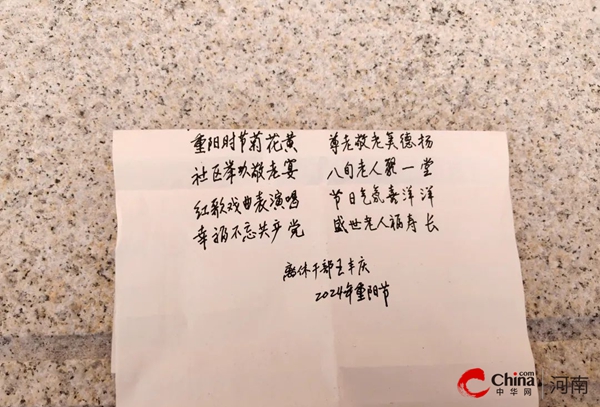 重阳时节菊花黄 尊老敬老美德扬
社区举办敬老宴 八旬老人聚一堂
红歌戏曲表演唱 节日气氛喜洋洋
幸福不忘共产党 盛世老人福寿长
离休干部王丰庆
2024年重阳节
China.com 河南
中华网